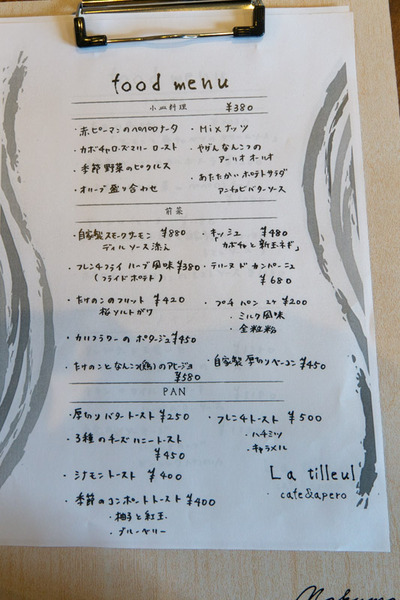 food menu
小皿料理 ¥380
・赤ピーマンのペペロナータ ・Mixナッツ
・カボチャローズマリーロースト ・やげんなんこつの
アーリオオーリオ
・季節野菜のピクルス ・あたたかいポテトサラダ
・オリーブ盛り合わせ アンチョビバターソース
前菜
・自家製スモークサーモン ¥880 ・キッシュ ¥480
ディルソース添え 「カボチャと新玉ネギ」
・フレンチフライ ハーブ風味 ¥380 ・テリーヌ ド カンパーニュ
(フライドポテト) ¥680
・たけのこのフリット ¥420 ・プチパン 2ケ ¥200
桜ソルトがけ ・ミルク風味
・全粒粉
・カリフラワーのポタージュ ¥450
・たけのことなんこつ(鶏)のアヒージョ ・自家製厚切りベーコン ¥450
¥580
PAN
・厚切りバタートースト ¥250 ・フレンチトースト ¥500
・ハチミツ
・3種のチーズハニートースト ・キャラメル
¥450
・シナモントースト ¥400
La tilleul
・季節のコンポートトースト ¥400 cafe&apero
・柚子と紅玉
・ブルーベリー